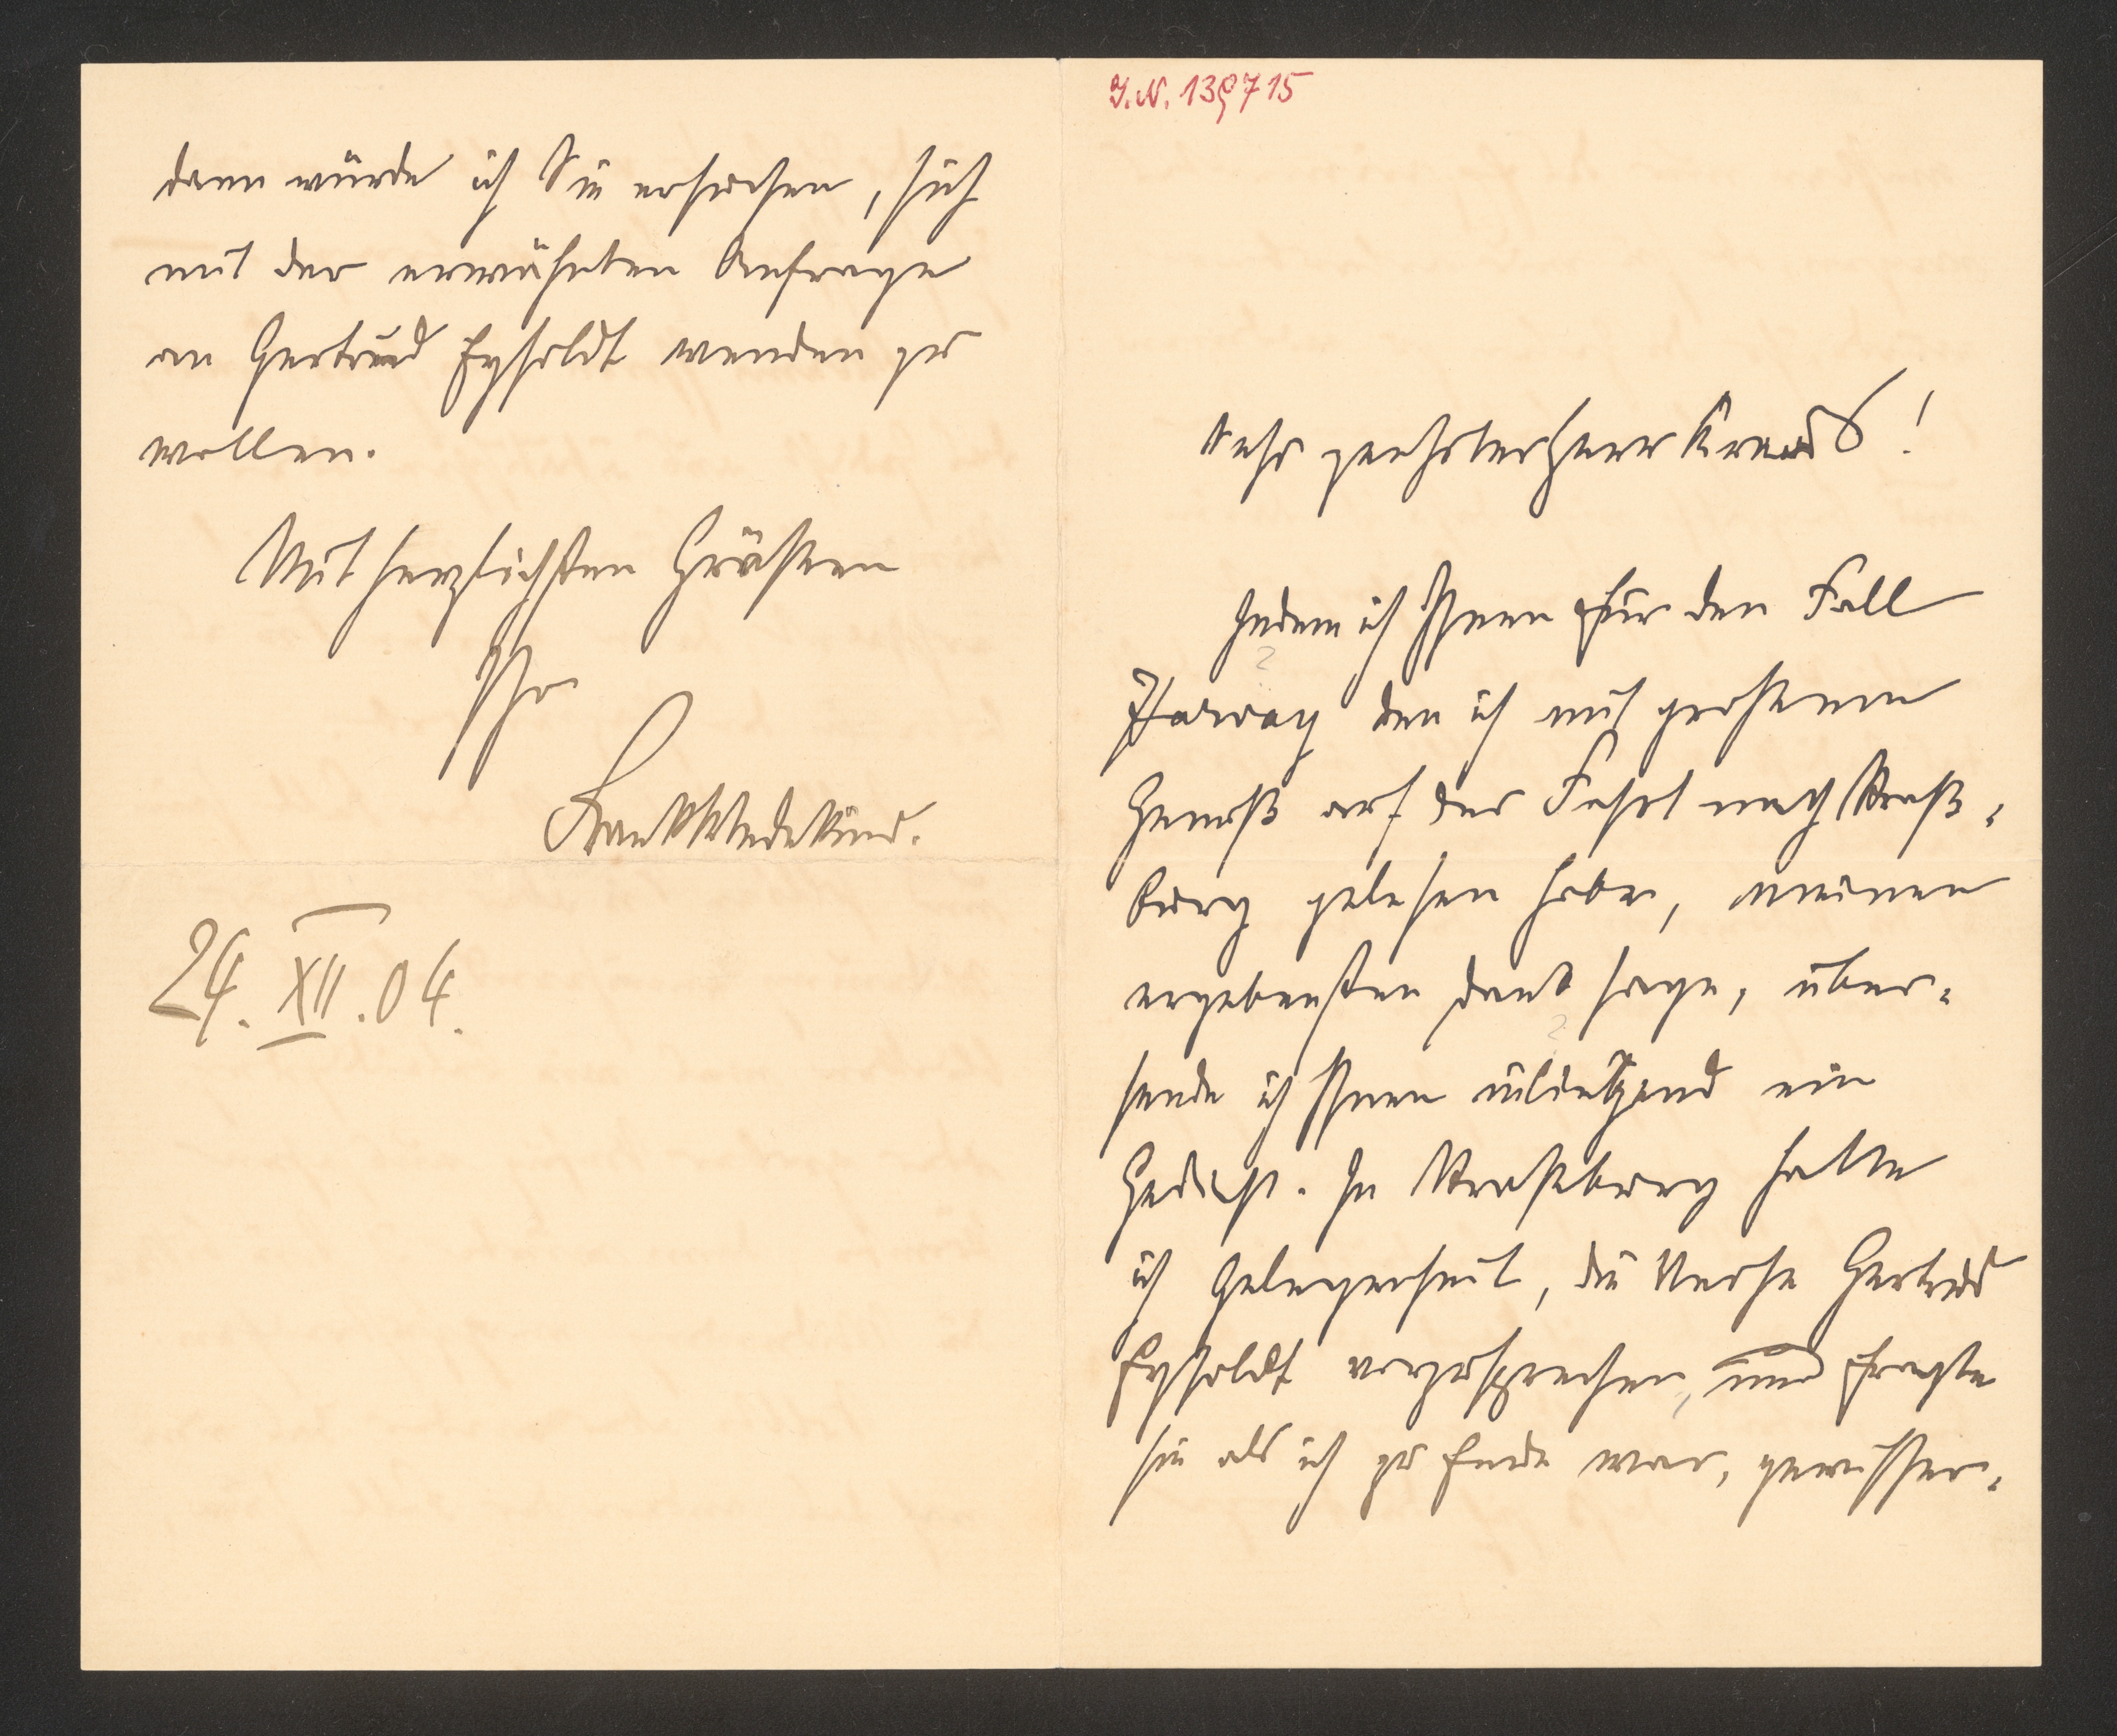 dann würde ich Sie ersuchen, sich
mit der erwähnten Anfrage
an Gertrud Eysoldt wenden zu
wollen.
Mit herzlichsten Grüßen
Ihr
FrankWedekind.
24. XII. 04.
I. N. 139715
Sehr geehrter Herr Kraus!
Indem ich Ihnen für den Fall
Hervay den ich mit großem
Genuß auf der Fahrt nach Straß-
burg gelesen habe, meinen
ergebensten Dank sage, über-
sende ich Ihnen inliegend ein
Gedicht. In Straßburg hatte
ich Gelegenheit, die Verse Gertrud
Eysoldt vorzusprechen, und fragte
sie als ich zu Ende war, gewisser-